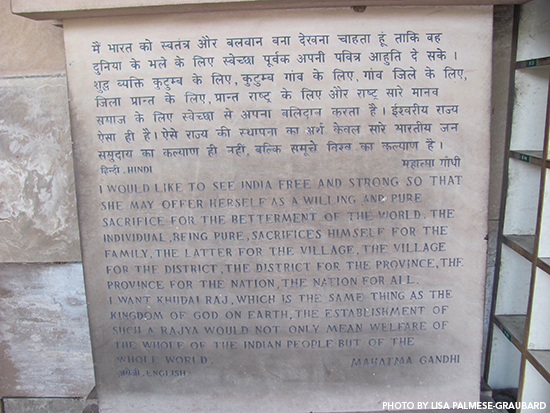 मैं भारत को स्वतंत्र और बलवान बना देखना चाहता हूं ताकि वह
दुनिया के भले के लिए स्वेच्छा पूर्वक अपनी पवित्र आहुति दे सके ।
शुद्ध व्यक्ति कुटुम्ब के लिए, कुटुम्ब गांव के लिए, गांव जिले के लिए,
जिला प्रान्त के लिए, प्रान्त राष्ट्र के लिए और राष्ट्र सारे मानव
समाज के लिए स्वेच्छा से अपना बलिदान करता है । ईश्वरीय राज्य
ऐसा ही है । ऐसे राज्य की स्थापना का अर्थ केवल सारे भारतीय जन
समुदाय का कल्याण ही नहीं, बल्कि समूचे विश्व का कल्याण है ।
महात्मा गाँधी
हिन्दी, HINDI
I WOULD LIKE TO SEE INDIA FREE AND STRONG SO THAT
SHE MAY OFFER HERSELF AS A WILLING AND PURE
SACRIFICE FOR THE BETTERMENT OF THE WORLD. THE
INDIVIDUAL, BEING PURE, SACRIFICES HIMSELF FOR THE
FAMILY, THE LATTER FOR THE VILLAGE, THE VILLAGE
FOR THE DISTRICT, THE DISTRICT FOR THE PROVINCE, THE
PROVINCE FOR THE NATION, THE NATION FOR ALL.
I WANT KHUDAI RAJ, WHICH IS THE SAME THING AS THE
KINGDOM OF GOD ON EARTH, THE ESTABLISHMENT OF
SUCH A RAJYA WOULD NOT ONLY MEAN WELFARE OF
THE WHOLE OF THE INDIAN PEOPLE BUT OF THE
WHOLE WORLD
MAHATMA GANDHI
अंग्रेजी, ENGLISH
PHOTO BY LISA PALMESE-GRAUBARD